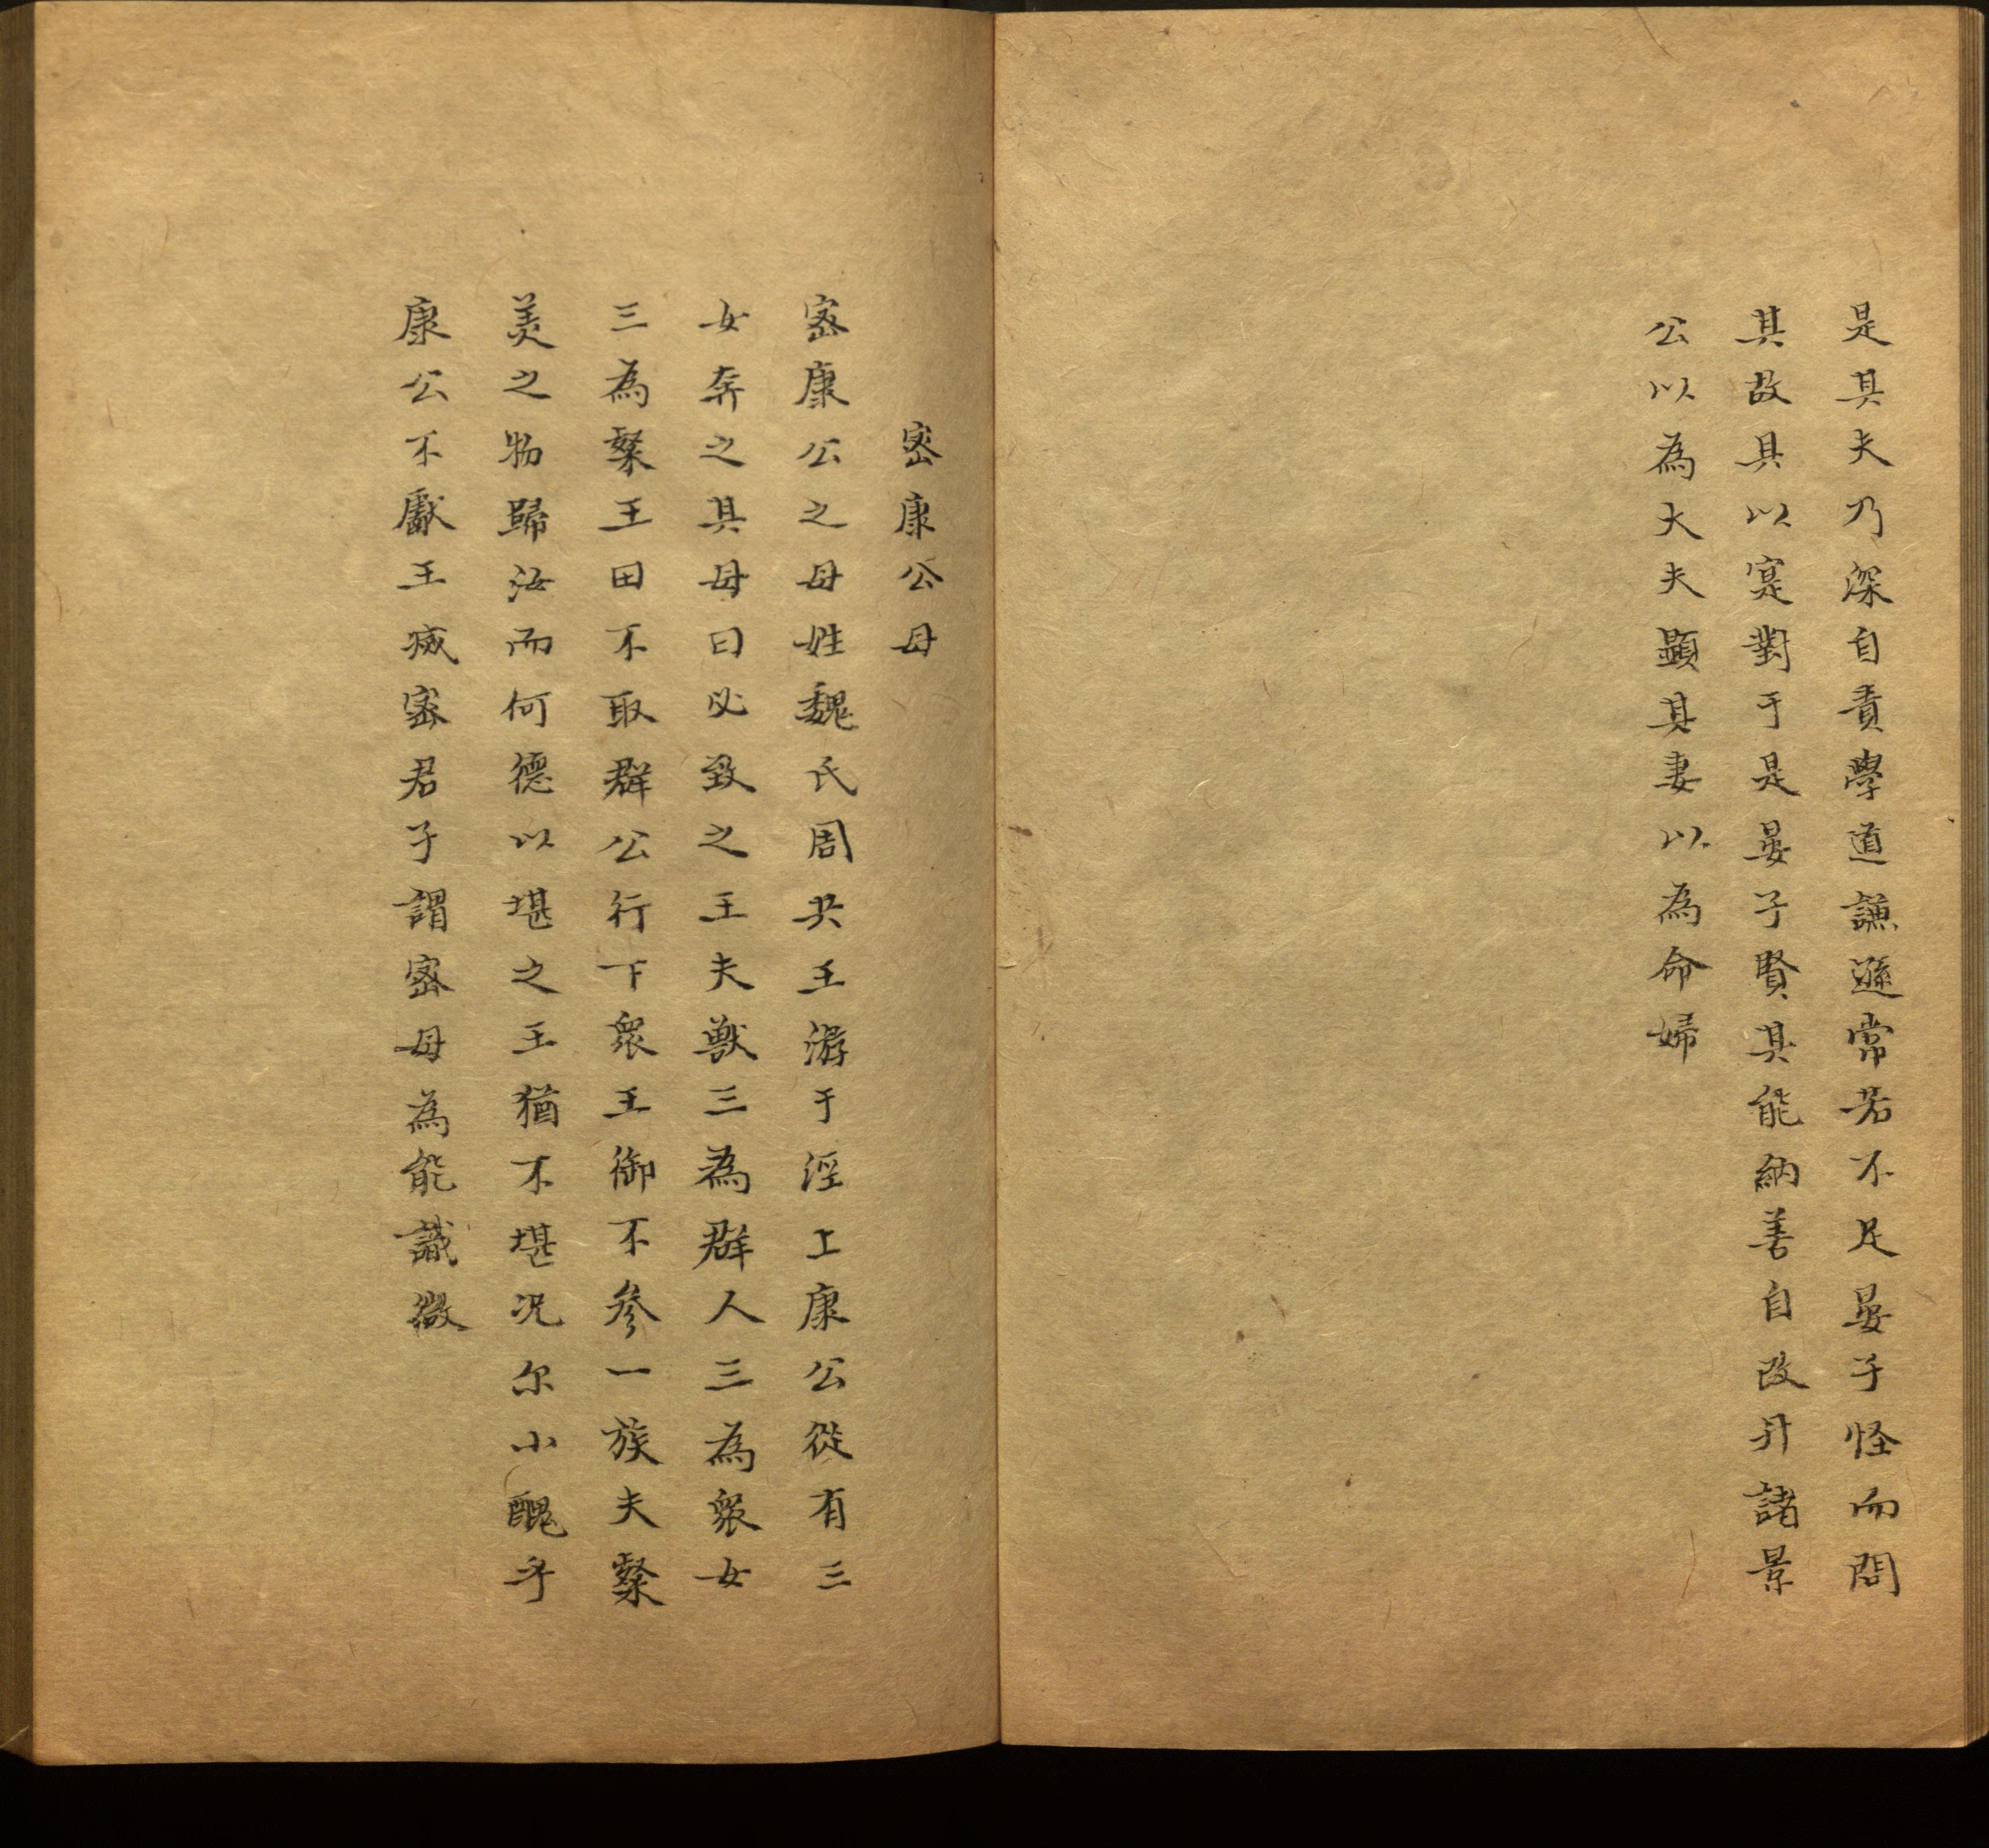 是其夫乃深自責學道謙遜常若不足晏子怪而問
其故具以寔對于是晏子賢其能納善自改升諸景
公以為大夫顯其妻以為命婦
密康公母
密康公之母姓魏氏周共王游于涇上康公從有三
女奔之其母曰必致之王夫獸三為群人三為衆女
三為粲王田不取群公行下衆王御不參一族夫粲
美之物歸汝而何德以堪之王猶不堪况尔小醜乎
康公不獻王滅密君子謂密母為能識微